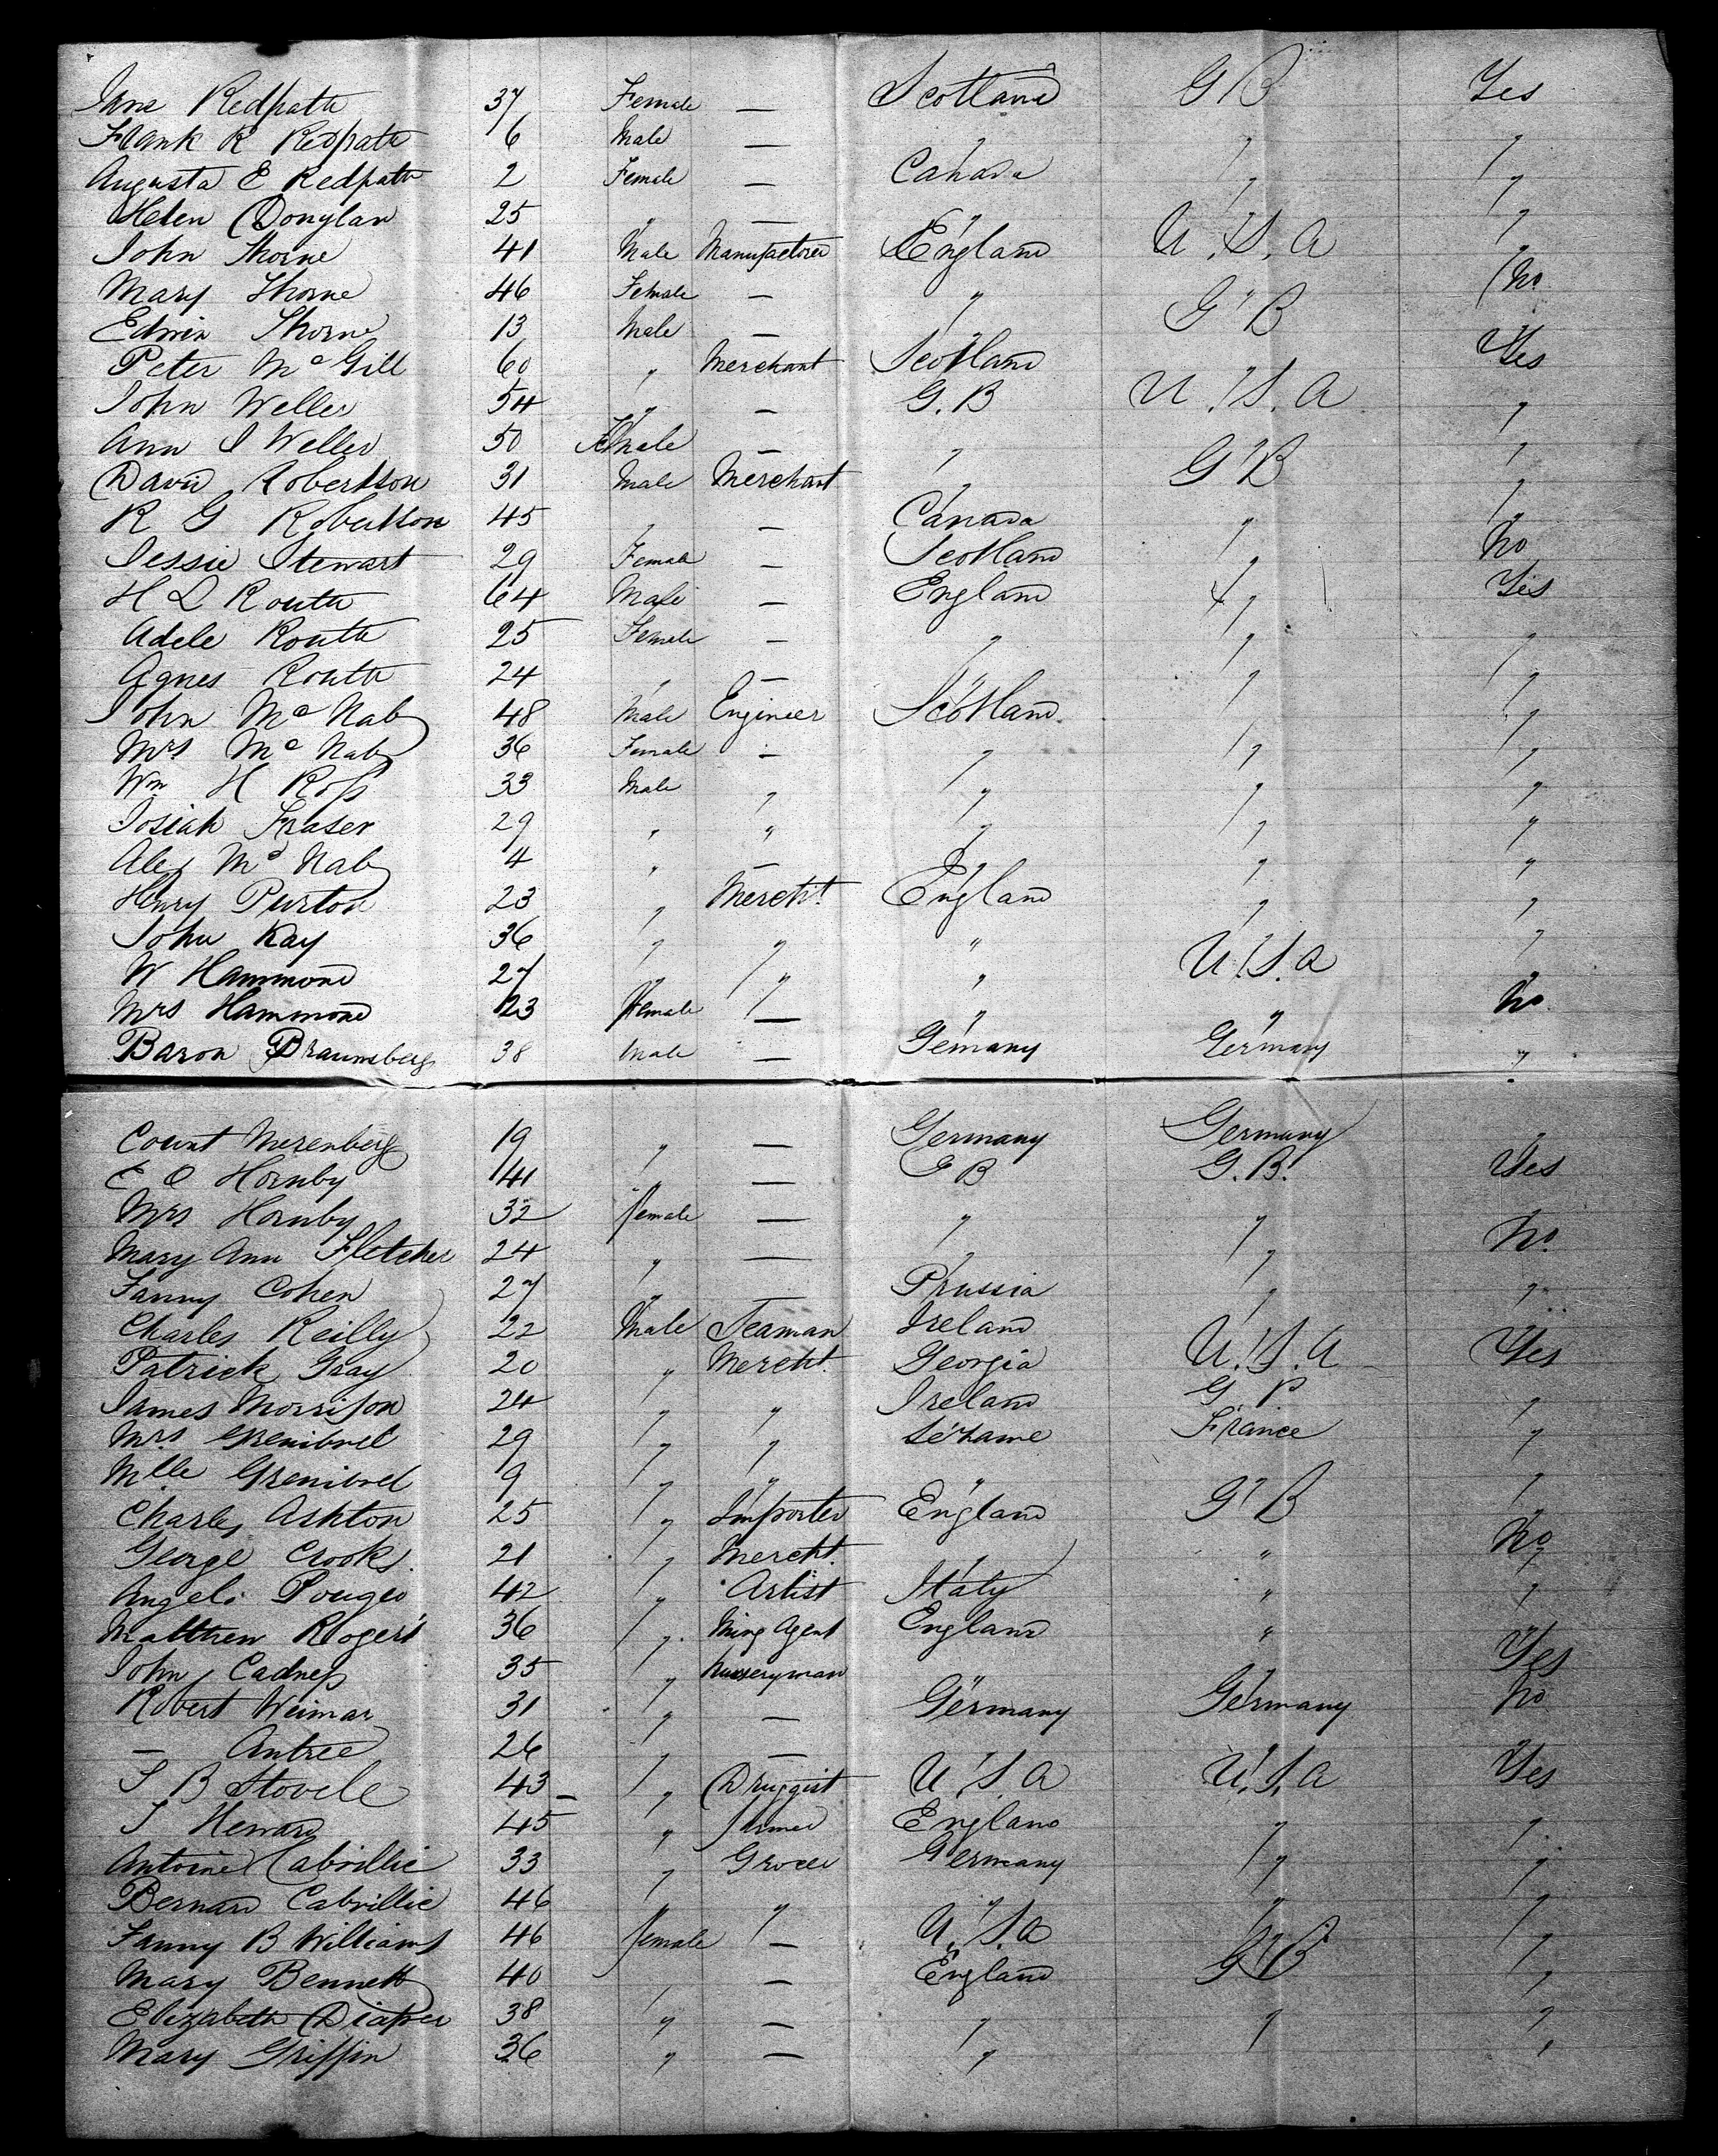 Jane Redpath 37 Female — Scotland G B Yes
Frank R Redpath 6 Male — " " "
Augusta E Redpath 2 Female — Canada " "
Helen Donylan 25 " — " " "
John Thorne 41 Male Manufacturer England U.S.A "
Mary Thorne 46 Female — " " No
Edwin Thorne 13 Male — " G B "
Peter McGill 60 " Merchant Scotland " Yes
John Weller 54 " — G.B U.S.A "
Ann I Weller 50 Female — " " "
David Robertson 31 Male Merchant " G B "
R G Robertson 45 " — Canada " "
Jessie Stewart 29 Female — Scotland " No
H L Routh 64 Male — England " Yes
Adele Routh 25 Female — " " "
Agnes Routh 24 " — " " "
John McNab 48 Male Engineer Scotland " "
Mrs McNab 36 Female — " " "
Wm H Ross 33 Male " " " "
Josiah Fraser 29 " " " " "
Alex McNab 4 " — " " "
Henry Purton 23 " Mercht. England " "
John Kay 36 " " " " "
W Hammond 27 " " " U.S.A "
Mrs Hammond 23 Female — " " No
Baron Braunsberg 38 Male — Gemany Germany "
Count Merenberg 19 " — Germany Germany "
E O Hornby 41 " — G B G.B. Yes
Mrs Hornby 32 female — " " "
Mary Ann Fletcher 24 " — " " No
Fanny Cohen 27 " — Prussia " "
Charles Reilly 22 Male Seaman Ireland " "
Patrick Gray 20 " Mercht Georgia U.S.A Yes
James Morrison 24 " " Ireland G B "
Mrs 29 " " France "
Mlle 9 " " " " "
Charles Ashton 25 " Importer England G B "
George Crooks 21 " Mercht. " " No
Angelo 42 " Artist Italy " "
Matthew Rogers 36 " Ming Agent England " "
John Cadness 35 " Nurseryman " " Yes
Robert Weimar 31 " — Germany Germany No
— Antree 26 " — " " "
S B Stovell 43 " Druggist U.S.A U.S.A Yes
J Heward 45 " farmer England " "
Antoine Cabrillic 33 " Grocer Germany " "
Bernard Cabrillic 46 " " " " "
Fanny B Williams 46 female — U.S.A " "
Mary Bennett 40 " — England G B "
Elizabeth Diaper 38 " — " " "
Mary Griffin 36 " — " " "